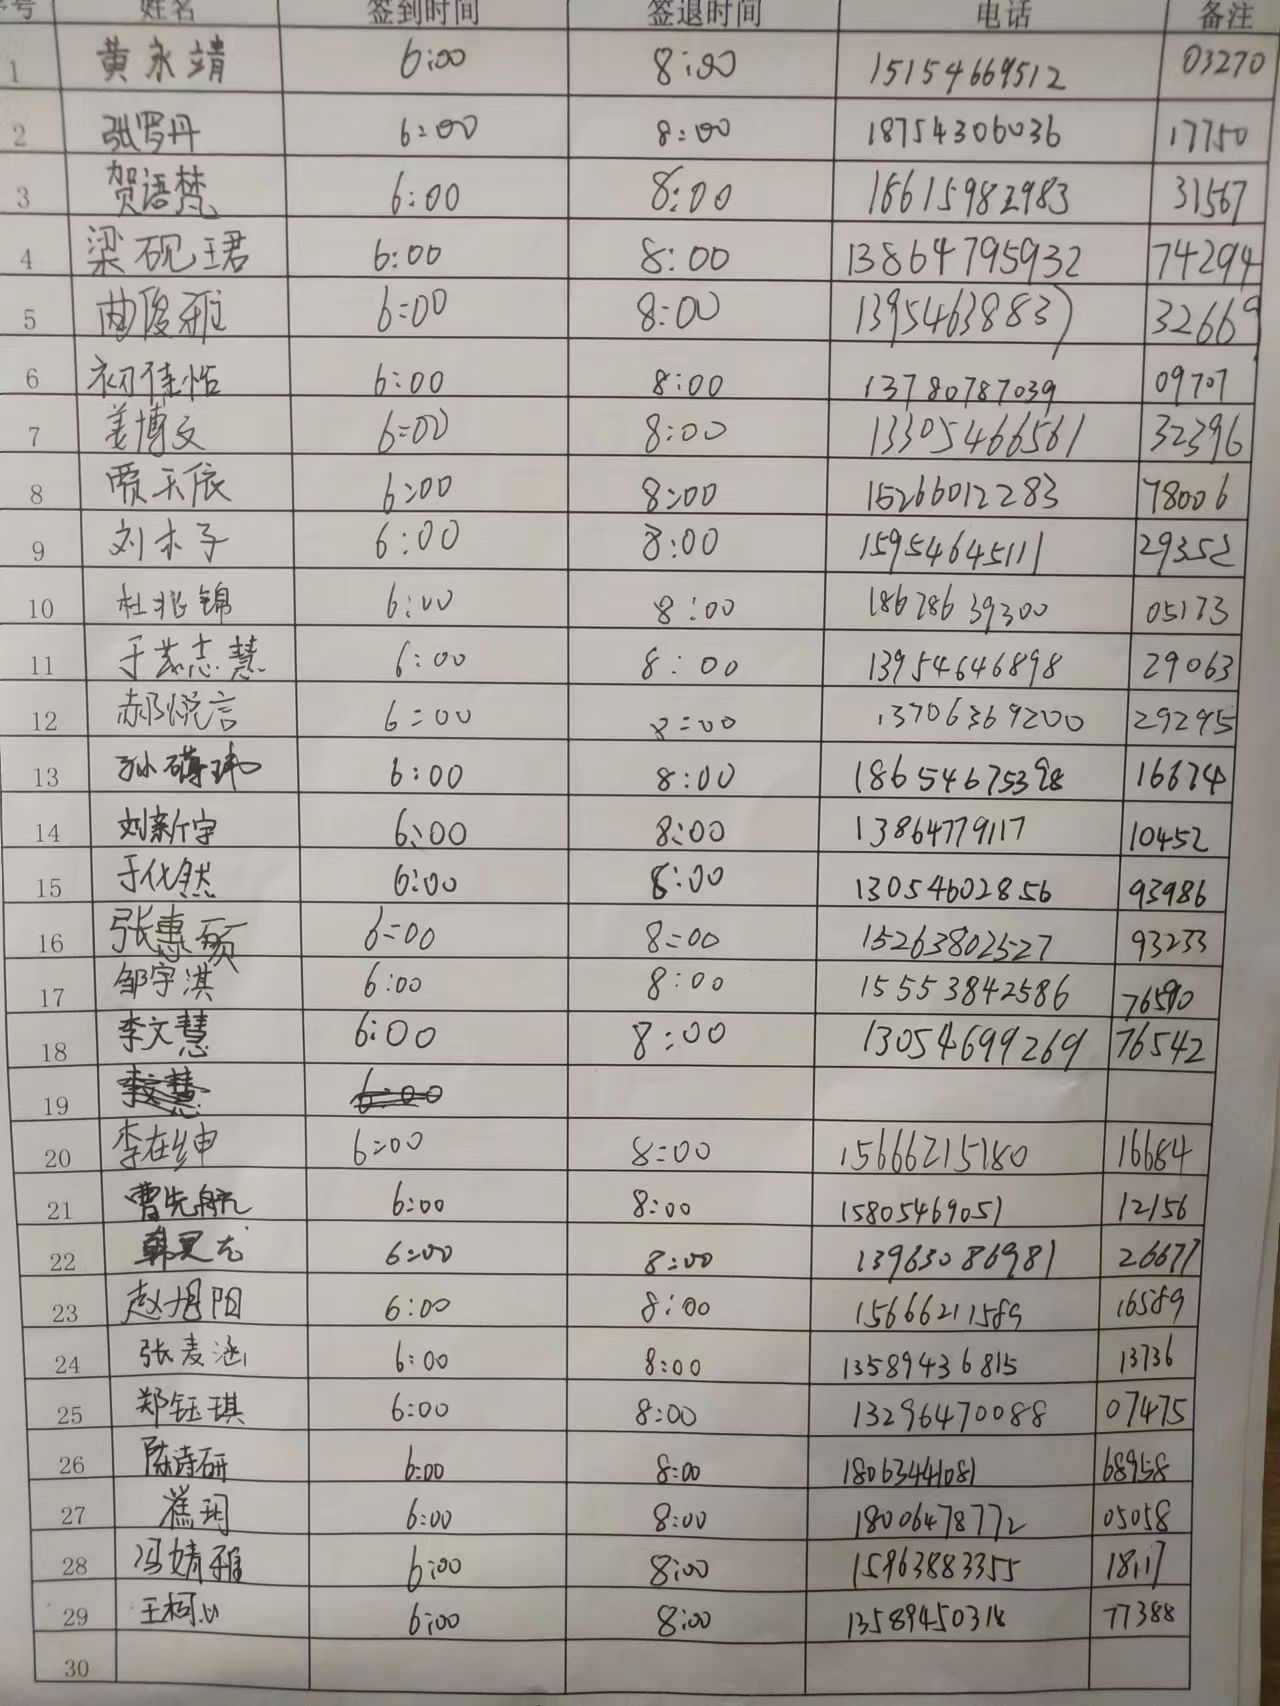 序号 姓名 签到时间 签退时间 电话 备注
1 黄永靖 6:00 8:00 15154669512 03270
2 张罗丹 6:00 8:00 18754306036 17750
3 贺语梵 6:00 8:00 18615982983 31567
4 梁砚珺 6:00 8:00 13864795932 74294
5 曲俊雅 6:00 8:00 13954638837 32669
6 初佳恬 6:00 8:00 13780787039 09707
7 姜博文 6:00 8:00 13305466561 32396
8 贾天依 6:00 8:00 15266012283 78006
9 刘木子 6:00 8:00 15954645111 29352
10 杜兆锦 6:00 8:00 18678639300 05173
11 于 志慧 6:00 8:00 13954646898 29063
12 郝悦言 6:00 8:00 13706369200 29295
13 6:00 8:00 18654675398 16674
14 刘新宇 6:00 8:00 13864779117 10452
15 于化然 6:00 8:00 13054602856 93986
16 张惠硕 6:00 8:00 15263802527 93233
17 邹宇淇 6:00 8:00 15553842586 76590
18 李文慧 6:00 8:00 13054699269 76542
19 李文慧 6:00
20 李在绅 6:00 8:00 15666215180 16684
21 曹先航 6:00 8:00 15805469051 12156
22 6:00 8:00 13963086981 26677
23 赵旭阳 6:00 8:00 15666211589 16589
24 张麦涵 6:00 8:00 13589436815 13736
25 郑钰琪 6:00 8:00 13296470088 07475
26 陈诗研 6:00 8:00 18063441081 68958
27 6:00 8:00 18006478772 05058
28 冯婧雅 6:00 8:00 15963883355 18117
29 6:00 8:00 13589450318 77388
30